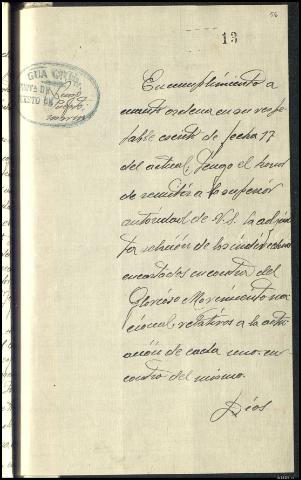 56
13
GUA CIVIL
PUESTO DE
En cumplimiento a
cuanto ordena en su respe-
table escrito de fecha 17
del actual, tengo el honor
de remitir a la superior
autoridad de V.S. la adjun
ta relación de los individuos
encartados en contra del
Glorioso Movimiento na
cional, relativos a la actu
ación de cada uno en
contra del mismo.
Dios